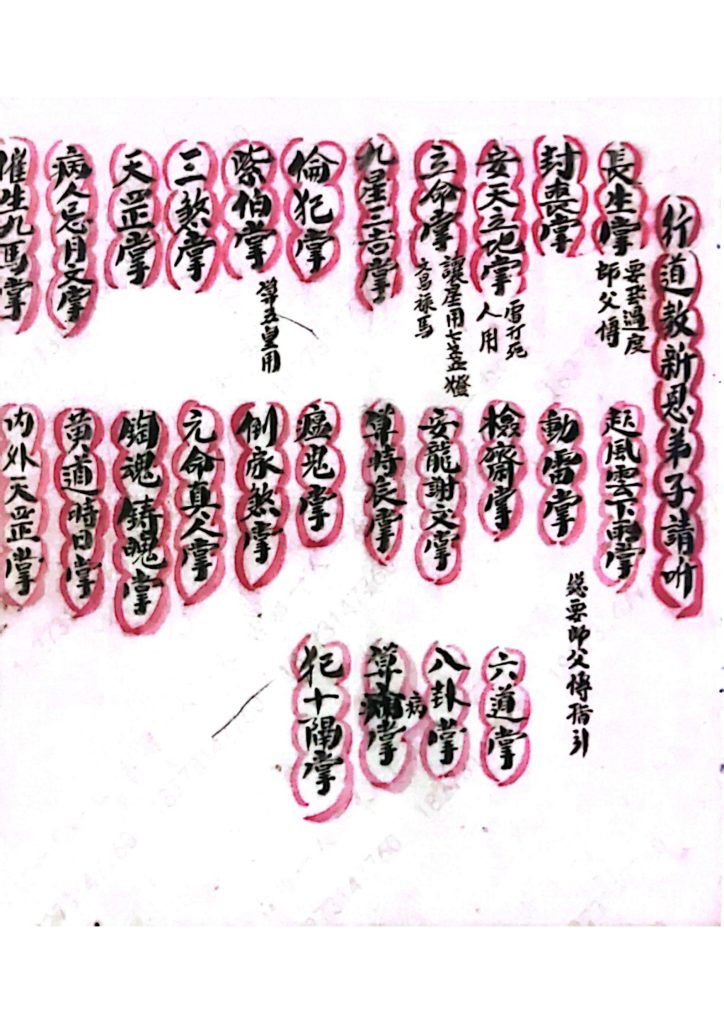 行道教新恩弟子請听
長生掌
要發過度
師父傳
封喪掌
安天立地掌
雷打死
人用
立命掌
讓星用七盞燈
文馬祿馬
九星三吉掌
倫犯掌
紫伯掌
第五皇用
三煞掌
天罡掌
病人忌月文掌
催生九馬掌
起風雲下雨掌
總要師父傳指引
動雷掌
檢齋掌
安龍謝文掌
算時辰掌
瘟鬼掌
倒家煞掌
元命真人掌
鎖魂鑄魄掌
黃道時日掌
内外天罡掌
六道掌
八卦掌
算病掌
犯十隔掌